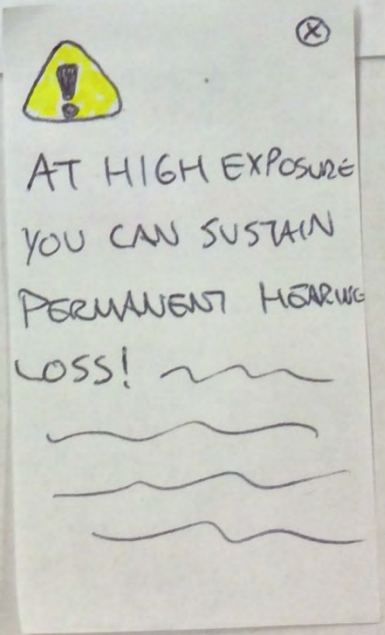 AT HIGH EXPOSURE
YOU CAN SUSTAIN
PERMANENT HEARING
LOSS!